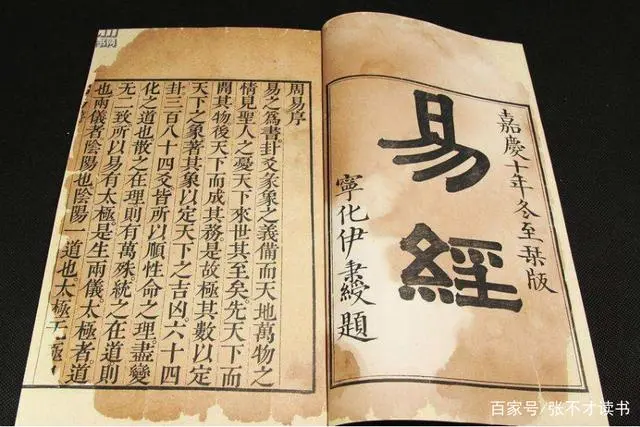 嘉慶十年冬至栞版
易經
寧化伊秉綬題
周易序
易之爲書卦爻彖象之義備而天地萬物之
情見聖人之憂天下來世其至矣先天下而
開其物後天下而成其務是故極其數以定
天下之象著其象以定天下之吉凶六十四
卦三百八十四爻皆所以順性命之理盡變
化之道也散之在理則有萬殊統之在道則
无二致所以易有太極是生兩儀太極者道
也兩儀者陰陽也陰陽一道也太極无極
百家号/张不才读书